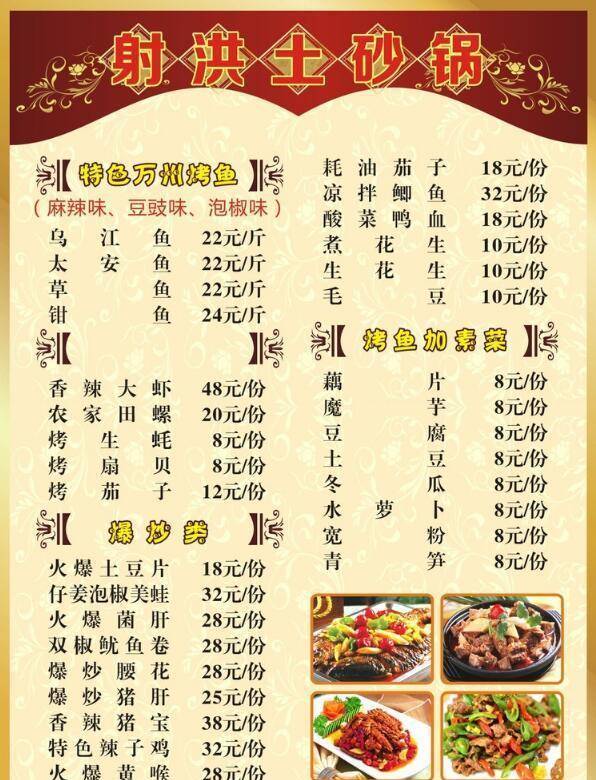 射洪土砂锅
特色万州烤鱼
（麻辣味、豆豉味、泡椒味）
乌江鱼 22元/斤
太安鱼 22元/斤
草鱼 22元/斤
钳鱼 24元/斤
香辣大虾 48元/份
农家田螺 20元/份
烤生蚝 8元/份
烤扇贝 8元/份
烤茄子 12元/份
爆炒类
火爆土豆片 18元/份
仔姜泡椒美蛙 32元/份
火爆菌肝 28元/份
双椒鱿鱼卷 28元/份
爆炒腰花 28元/份
爆炒猪肝 25元/份
香辣猪宝 38元/份
特色辣子鸡 32元/份
火爆黄喉 28元/份
耗油茄子 18元/份
凉拌鲫鱼 32元/份
酸菜鸭血 18元/份
煮花生 10元/份
生花生 10元/份
毛豆 10元/份
烤鱼加素菜
藕片 8元/份
魔芋 8元/份
豆腐 8元/份
土豆 8元/份
冬瓜 8元/份
水萝卜 8元/份
宽粉 8元/份
青笋 8元/份